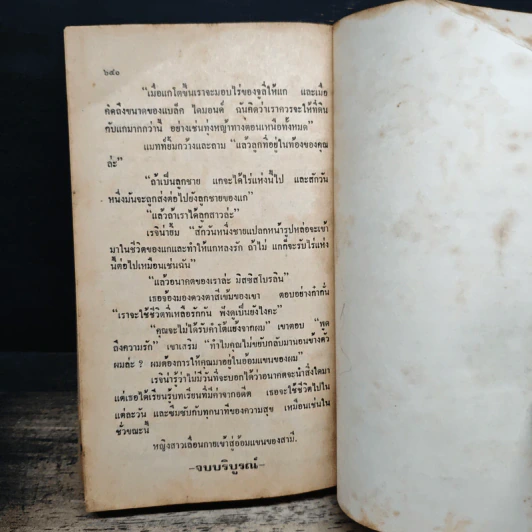 ๖๔๐
“เมื่อแกโตขึ้นเราจะมอบไร่ของชูลี่ให้แก และเมื่อ
คิดถึงขนาดของแบล็ค ไดมอนด์ ฉันคิดว่าเราควรจะให้ที่ดิน
กับแกมากกว่านี้ อย่างเช่นทุ่งหญ้าทางตอนเหนือทั้งหมด”
แมทท์ยิ้มกว้างและถาม “แล้วลูกที่อยู่ในท้องของคุณ
ล่ะ”
“ถ้าเป็นลูกชาย แกจะได้ไร่แห่งนี้ไป และสักวัน
หนึ่งมันจะถูกส่งต่อไปยังลูกชายของแก”
“แล้วถ้าเราได้ลูกสาวล่ะ”
เรจิน่ายิ้ม “สักวันหนึ่งชายแปลกหน้ารูปหล่อจะเข้า
มาในชีวิตของแกและทำให้แกหลงรัก ถ้าไม่ แกก็จะรับไร่แห่ง
นี้ต่อไปเหมือนเช่นฉัน”
“แล้วอนาคตของเราล่ะ มิสซิสโบรลิน”
เธอจ้องมองดวงตาสีเข้มของเขา ตอบอย่างกำกึ๋น
“เราจะใช้ชีวิตที่เหลือรักกัน ฟังดูเป็นยังไงคะ”
“คุณจะไม่ได้รับคำโต้แย้งจากผม” เขาตอบ “พูด
ถึงความรัก” เขาเสริม “ทำไมคุณไม่ขยับกลับมานอนข้างตัว
ผมล่ะ ? ผมต้องการให้คุณมาอยู่ในอ้อมแขนของผม”
เรจิน่ารู้ว่าไม่มีวันที่จะบอกได้ว่าอนาคตจะนำสิ่งใดมา
แต่เธอได้เรียนรู้บทเรียนที่มีค่าจากอดีต เธอจะใช้ชีวิตไปใน
แต่ละวัน และซึมซับกับทุกนาทีของความสุข เหมือนเช่นใน
ชั่วขณะนี้
หญิงสาวเลื่อนกายเข้าสู่อ้อมแขนของสามี.
-จบบริบูรณ์-